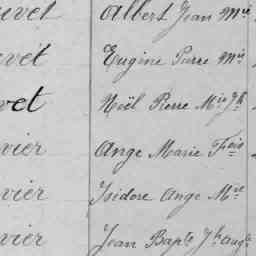 uvet Albert Jean Mie
uvet Eugène Pierre Mie
uvet Noël Pierre Mie Jh
vier Ange Marie Fois
vier Isidore Ange Mie
vier Jean Bapte Jh Augte